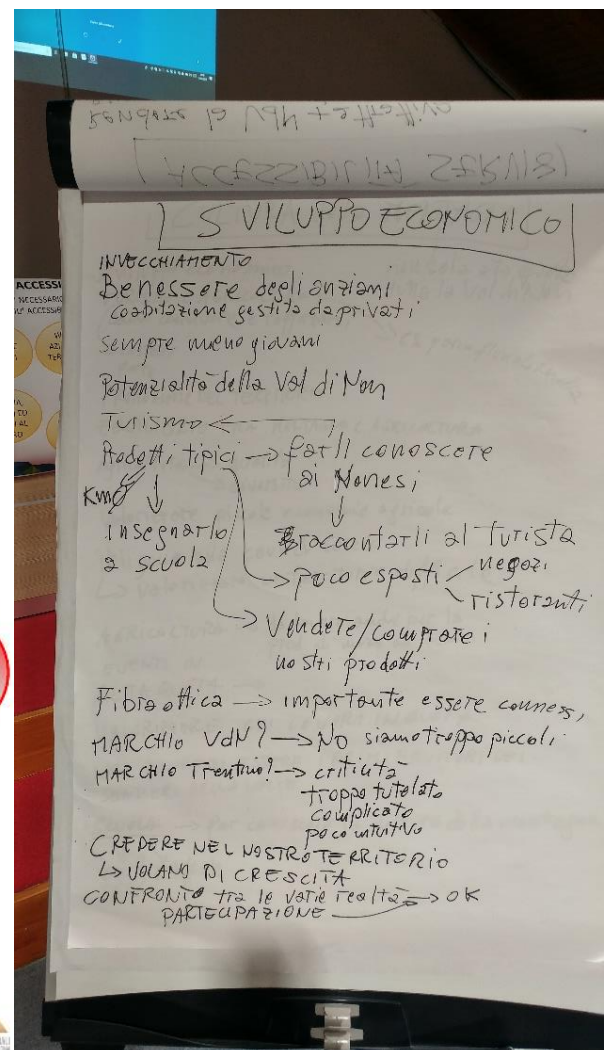 Rendere la VdN + attrattiva
ACCESSIBILITÀ SERVIZI
SVILUPPO ECONOMICO
INVECCHIAMENTO
Benessere degli anziani
coabitazione gestita da privati
sempre meno giovani
Potenzialità della Val di Non
TURISMO ←
Prodotti tipici → farli conoscere
ai Nonesi
Km0
↓
insegnarlo
a scuola
↓
raccontarli al turista
→ poco esposti
negozi
ristoranti
→ Vendere/comprare i
nostri prodotti
Fibra ottica → importante essere conness,
MARCHIO VdN? → No siamo troppo piccoli
MARCHIO Trentino? → criticità
troppo tutelato
complicato
poco intuitivo
CREDERE NEL NOSTRO TERRITERIO
↳ VOLANO DI CRESCITA
CONFRONTO tra le varie realtà → OK
PARTECIPAZIONE
ACCESSI
NECESSARIO